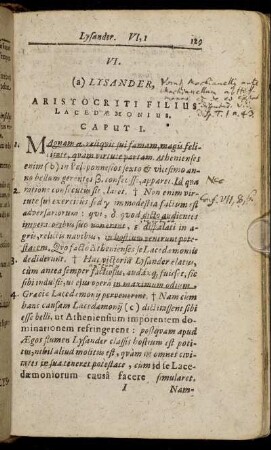 Lysander. VI, 1 129
VI.
(a) LYSANDER,
ARISTOCRITI FILIUS,
LACEDÆMONIUS.
CAPUT I.
MAgnam reliquit sui famam, magis feli-
citate, quam virtute partam. Athenienses
enim (b) in Peloponnesios sexto & vicesimo an-
no bellum gerentes confecisse, apparet. Id qua
ratione consecutus sit, latet. † Non enim virtute
sui exercitus sed immodestia factum est
adversariorum: qui, quod dicto audientes
imperatoribus suis non erant, dispalati in a-
gris, relictis navibus, in hostium venerunt pote-
statem. Quo facto Athenienses se Lacedæmoniis
dediderunt. † Hac victoria Lysander elatus,
cum antea semper factiosus, audaxque fuisset, sic
sibi indulsit, ut ejus opera in maximum odium
Græciæ Lacedæmonii pervenerint. † Nam cum
hanc causam Lacedæmonii (c) dictitassent sibi
esse belli, ut Atheniensium impotentem do-
minationem refringerent: postquam apud
Ægos flumen Lysander classis hostium est poti-
tus, nihil aliud molitus est, quàm ut omnes civi-
tates in sua teneret potestate, cum id se Lace-
dæmoniorum causâ facere simularet.
I Nam-